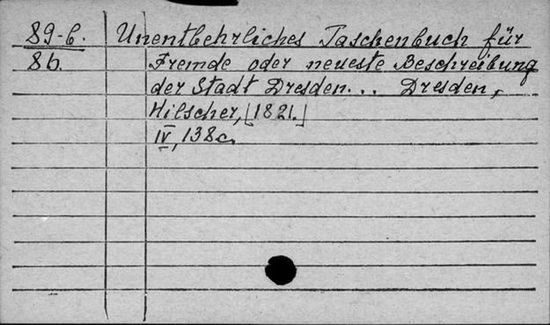 89-б. Unentbehrliches Taschenbuch für
86. Fremde oder neueste Beschreibung
der Stadt Dresden... Dresden,
Hilscher, [1821.]
IV, 138c.